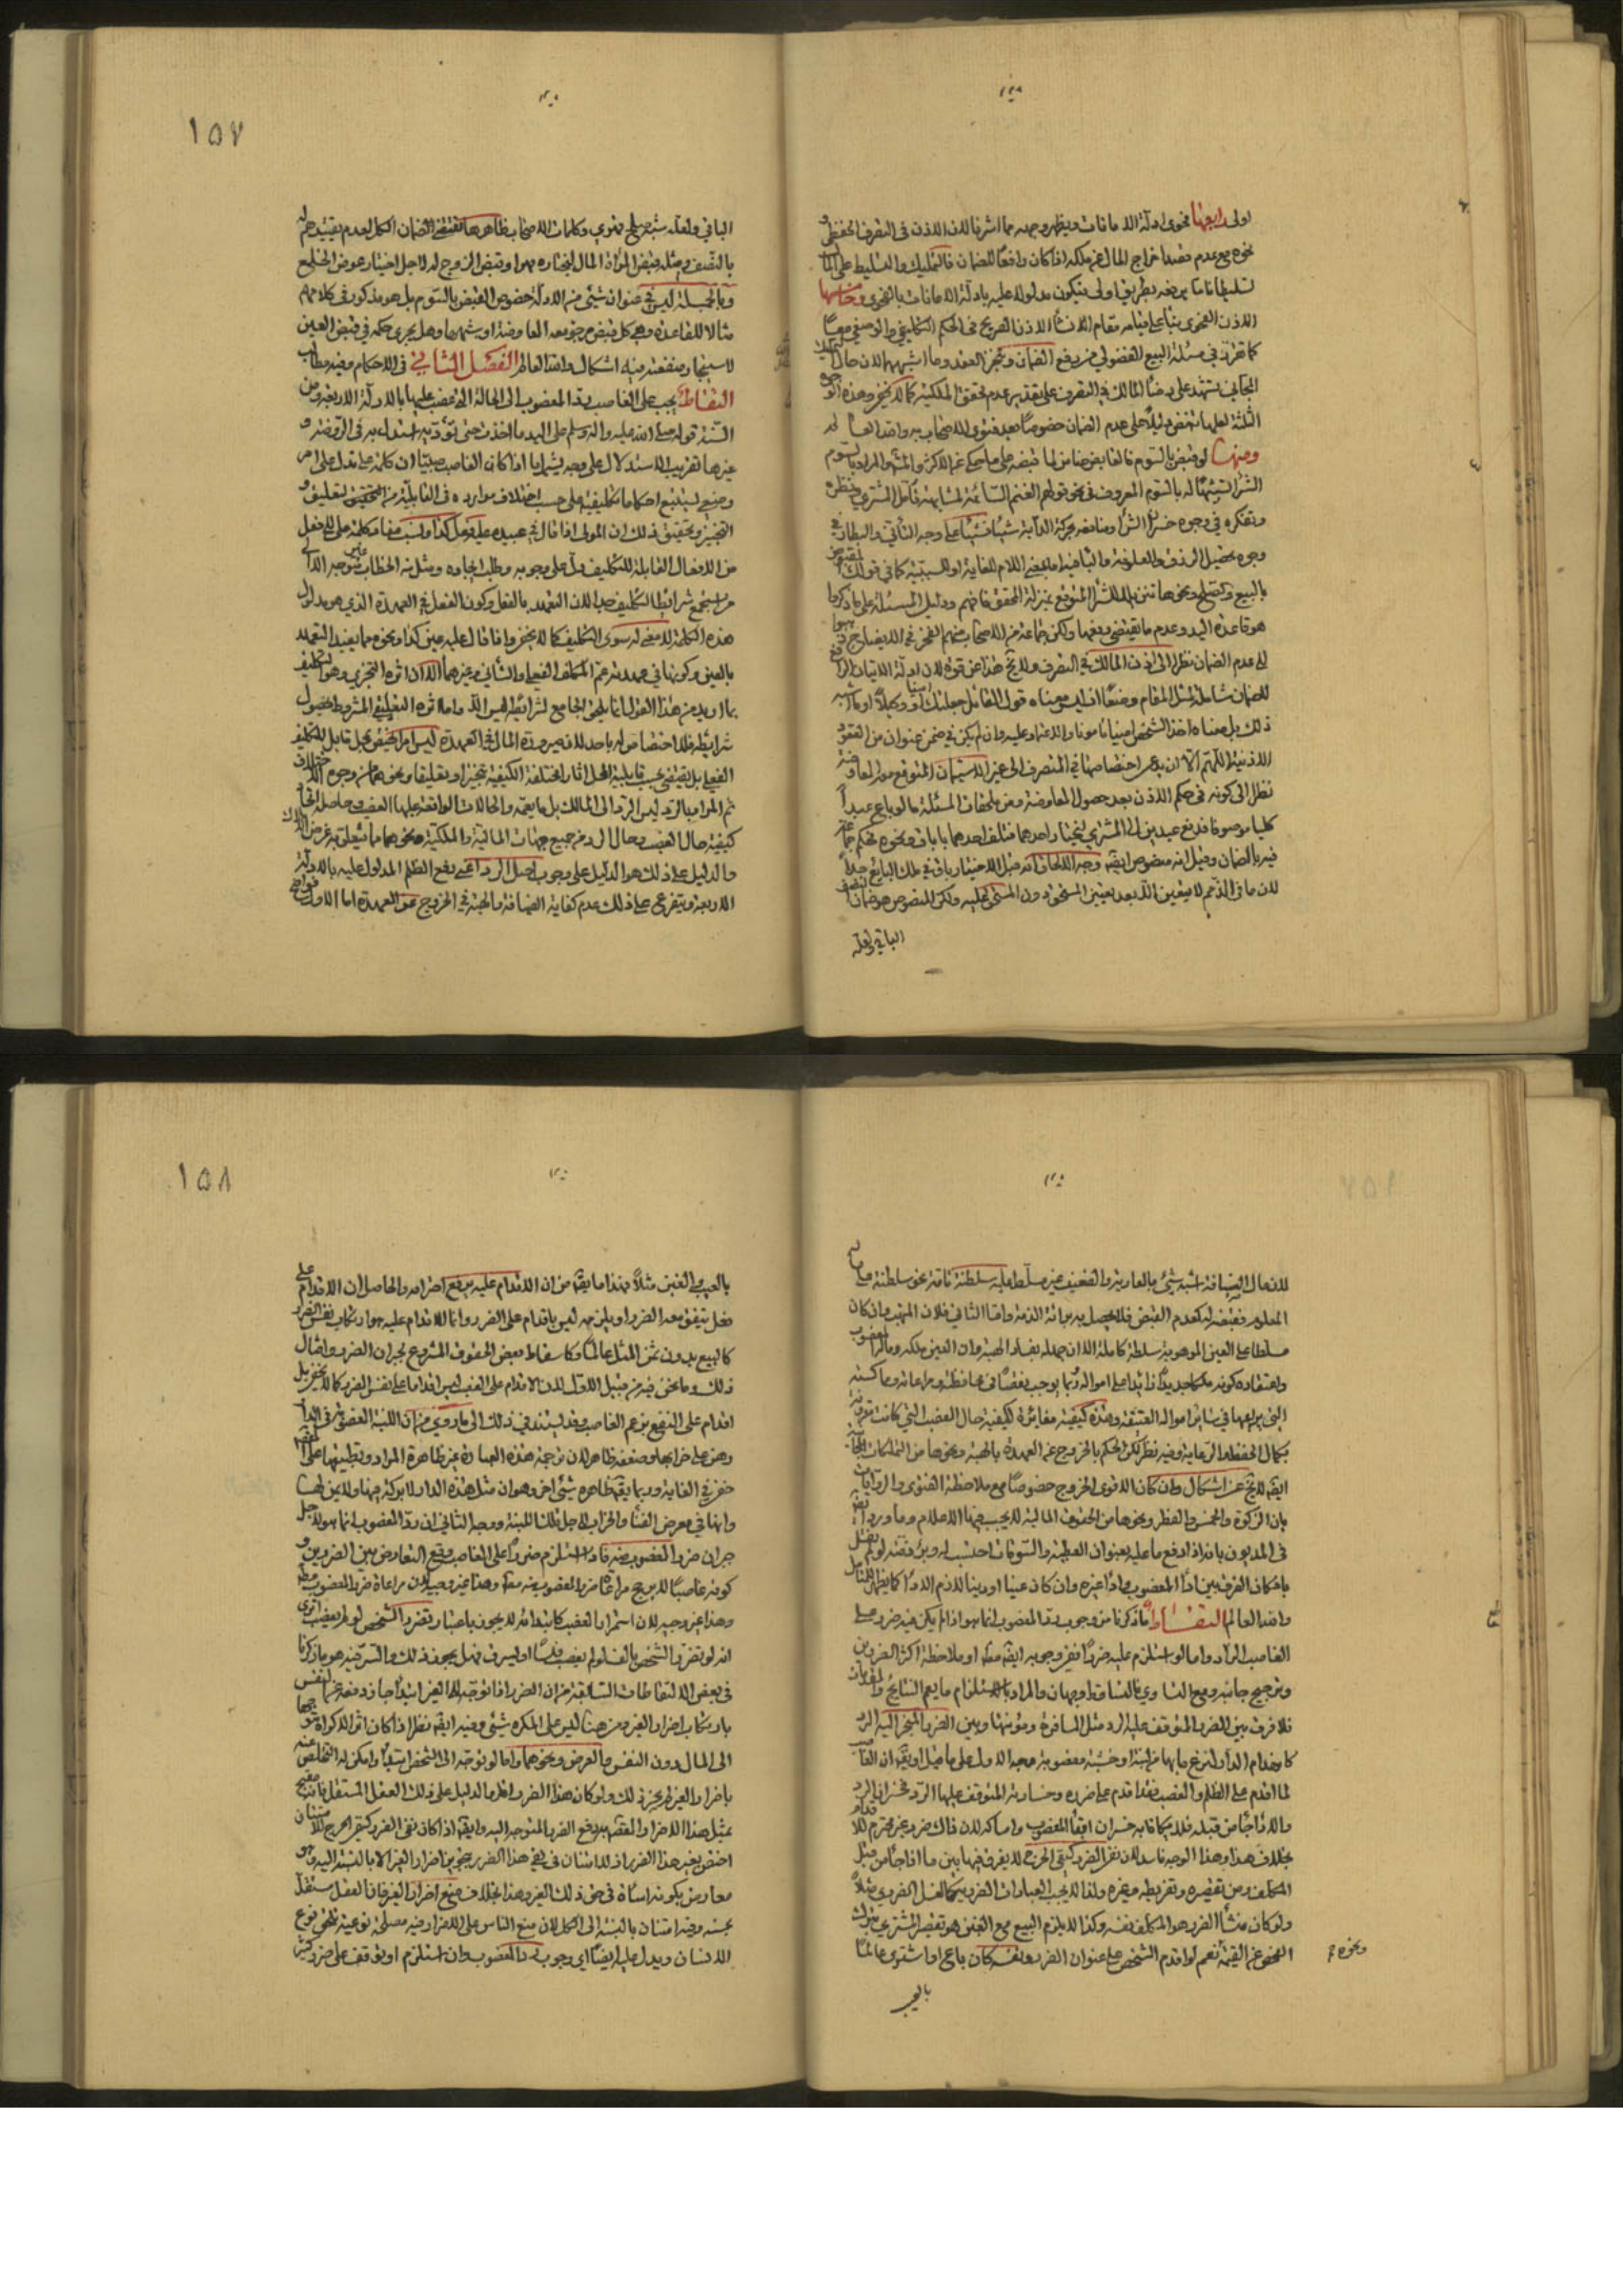 اولى رابعها فحوى ادلة الامانات ويظهر وجهه مما اشرنا لان الاذن فى التصرف الحفظى و
نحوه مع عدم قصد اخراج المال عن ملكه اذا كان رافعا للضمان فالتمليك والتسليط على المال
تسليطا تاما يرفعه بطريق اولى فيكون مدلولا عليه بادلة الامانات بالفحوى وخامسها
الاذن الفحوى بناء على قيامه مقام انشاء الاذن الصريح فى الحكم التكليفى والوضعى معا
كما تقرر فى مسئلة البيع الفضولى من رفع الضمان وتنجز العقد وما اشبههما لان حال التمليك
المجانى يشهد على رضا المالك فى التصرف على تقدير عدم تحقق الملكية كما لا يخفى وهذه الوجوه
الثلثة لعلها تنهض دليلا على عدم الضمان خصوصا بعد فتوى الاصحاب به والله العالم
ومنها لو قبض بالسوم فالقابض ضامن لما قبضه على ما حكى عن الاكثر والمشهور المراد بالسوم
الشراء تشبيها له بالسوم المعروف فى نحو قولهم الغنم السائمة لمشابهة تأمل المشترى ونظره
وتفكره فى وجوه خسران الشراء ومنافعه بحركة الدابة شيئا فشيئا على وجه التأنى والبطاء فى
وجوه تحصيل الرزق والعلوفة والباء فيه اما بمعنى اللام للغاية او للسببية كما فى قولك المقبوض
بالبيع والصلح ونحوهما تنزيلا للشراء المتوقع بمنزلة المحقق فافهم ودليل المسئلة على ما ذكروا
هو قاعدة اليد وعدم ما يقتضى رفعها ولكن جماعة من الاصحاب منهم الفخر فى الايضاح ذهبوا
الى عدم الضمان نظرا الى اذن المالك فى التصرف ولا يخ هذا عن قوة لان ادلة الايتمان الرافع
للضمان شاملة لهذا المقام وضعا اذ ليس معناه قول القائل جعلتك امينا او وكيلا او ما اشبه
ذلك بل معناه اخذ الشخص امينا مامونا والاعتماد عليه وان لم يكن فى ضمن عنوان من العقود
الاذنية اللهم الا ان يدعى اختصاصها فى المنصرف الى غير الاستيمان المتوقع مورد المعاوضة
نظرا الى كونه فى حكم الاذن بعد حصول المعاوضة ومن ملحقات المسئلة ما لو باع عبدا
كليا موصوفا فدفع عبدين الى المشترى ليختار احدهما فتلف احدهما باباق ونحوه فحكم جماعة
فيه بالضمان وقيل انه منصوص ايضا وجه الالحاق انه قبل الاختيار باق فى ملك البايع جدا
لان ما فى الذمم لا يتعين الا بعد تعيين المستحق دون المستحق عليه ولكن المنصوص هو ضمان النصف
الباقى ولعله
١٥٧
الباقى ولعله شبه صلح قهرى وكلمات الاصحاب ظاهرها مقتضى الضمان الكل لعدم تقييدهم له
بالنصف ومثله قبض المرأة المال لتختاره مهرا وقبض الزوج له لاجل اختيار عوض الخلع
وبالجملة ليس فى عنوان شىء من الادلة خصوص القبض بالسوم بل هو مذكور فى كلامهم
مثالا للقاعدة وهى كل قبض مرجو بعده المعاوضة او شبهها وهل يجرى حكمه فى قبض العين
لاستيجار منفعته فيه اشكال والله العالم الفصل الثانى فى الاحكام وفيه مطالب
التقاط يجب على الغاصب رد المغصوب الى الحالة التى غصب عليها بالادلة الاربعة ومن
السنة قوله صلى الله عليه واله وسلم على اليد ما اخذت حتى تؤدى استدل به فى الروضة و
غيرها تقريب الاستدلال على وجه يشمل ما اذا كان الغاصب صبيا ان كلمة على تدل على امر
وضعى يستتبع احكاما تكليفية على حسب اختلاف موارده فى القابلية من التحقيق لتعليق و
التنجيز وتحقيق ذلك ان المولى اذا قال فى عبيده عليه فعل كذا ونسب مفاد كلمة على الى فعل
من الافعال القابلة للتكليف دل على وجوبه وطلب ايجاده ومثل هذا الخطاب غير متوجه الا الى
من استجمع شرايط التكليف جدا لان التعهد بالفعل وكون الفعل فى العهدة الذى هو مدلول
هذه الكلمة لا معنى له سوى التكليف كما لا يخفى واذا قال عليه عين كذا ونحوه مما يفيد التعهد
بالعين وكونها فى عهدته عم المكلف الفعلى والشانى وغيرهما الا ان اثره التنجزى وهو التكليف
بما اريد من هذا القول انما يلحق الجامع لشرائطه ليس الا واما اثره التعليقى المشروط بحصول
شرايطه فلا اختصاص له باحد لان صيرورة المال فى العهدة ليس امرا يختص بمحل قابل للتكليف
الفعلى بل يقتضى بحسب قابلية المحل اثارا مختلفة الكيفية تنجيزا وتعليقا ونحوهما من وجوه الاختلاف
ثم المراد بالرد ليس الرد الى المالك بل ما يعمه والحالات الواقعة عليها الغصب حاصله اتحاد
كيفية حال الغصب وحال الرد من جميع جهات المالية والملكية ونحوهما مما يتعلق به غرض الملاك
والدليل على ذلك هو الدليل على وجوب اصل الرد اعنى رفع الظلم المدلول عليه بالادلة
الاربعة ويتفرع على ذلك عدم كفاية الضيافة والهبة فى الخروج عن العهدة اما الاول فواضح
لان مال الضيافة اشبه شىء بالعارية والضيف غير مسلط عليه سلطنة تامة نحو سلطنة ماله
المعلومه فقبضه له كعدم القبض فلا يحصل به برائة الذمة واما الثانى فلان المتهب وان كان
مسلطا على العين الموهوبة سلطنة كاملة الا ان جهله بفساد الهبة وان العين ملكه ومال المغصوب
واعتقاده كونه ملكا جديدا زائدا على امواله ربما يوجب نقصا فى محافظته ومراعاته ومماكسته
التى يراعيها فى سائر امواله العتيقة وهذه كيفية مغايرة لكيفية حال الغصب التى كانت مقرونة
بكمال الحفظ والرعاية وفيه نظر لكن الحكم بالخروج عن العهدة بالهبة ونحوها من التمليكات المجانية
ايضا لا يخ عن اشكال وان كان الاقوى الخروج خصوصا مع ملاحظة الفتوى والروايات
بان الزكوة والخمس والفطر ونحوها من الحقوق المالية لا يجب فيها الاعلام وما ورد ايضا
فى المديون بانه اذا دفع ما عليه بعنوان العطية والسوغات احتسب له وبرء ذمته لو لم نقل
بامكان الفرق بين اداء المغصوب واداء غيره وان كان عينا او دينا لازم الاداء كما يظهر للمتأمل
والله العالم التقاط ما ذكرنا من وجوب رد المغصوب انما هو اذا لم يكن فيه ضرر على
الغاصب الراد واما لو استلزم عليه ضررا ففى وجوبه ايضا مط او ملاحظة اكثر الضررين
وترجيح جانبه ومع التساوى بالتساقط وجهان والمراد بالاستلزام ما يعم النتائج والمقدمات
فلا فرق بين الضرر المتوقف عليه الرد مثل المسافرة ومؤنتها وبين الضرر المنجر اليه الرد
كانهدام الدار لنزع ما بها من لبنة او خشبة مغصوبة وجه الاول على ما قيل او يقال ان الغاصب
لما اقدم على الظلم والغصب فقد اقدم على ضرره وخسارته المتوقف عليها الرد فخسران الرد
والاذى جاء من قبله فلا يكافا به خسران ابقاء المغصوب وامساكه لان ذاك ضرر غير محترم للاقدام
بخلاف هذا وهذا الوجه فاسد لان نفى الضرر كنفى الحرج لا يفرق فيها بين ما اذا جاء من قبل
المكلف ومن تقصيره وتفريطه وغيره ولذا لا يجب العبادات الضررية كالغسل الضررى مثلا
ولو كان منشأ الضرر هو المكلف نفسه وكذا لا يلزم البيع مع الغبن هو تقصير المشترى بترك
الفحص عن القيمة نعم لو اقدم الشخص على عنوان الضرر بنفسه كان باع او اشترى عالما
ونحوه
بالعيب
١٥٨
بالعيب والغبن مثلا فهذا ما يقال من ان الاقدام عليه يرفع احترامه والحاصل ان الاقدام على
فعل يتفق معه الضرر او يلزمه ليس باقدام على الضرر وانما الاقدام عليه هو ارتكاب نفس الضرر
كالبيع بدون ثمن المثل عالما وكاسقاط بعض الحقوق المشروع لجبران الضرر وامثال
ذلك وما نحن فيه من قبيل الاول لان الاقدام على الغصب ليس اقداما على نفس الضرر كما لا يخفى بل
اقدام على النفع بزعم الغاصب وقد يستند فى ذلك الى ما روى من ان اللبنة المغصوبة فى الدار
رهن على خرابها وضعفه ظاهر لان ترجمة هذه العبارة غير ظاهرة المراد وتطبيقها على المقصود
خفى فى الغاية وربما يقال ظاهره شىء اخر وهو ان مثل هذه الدار لا بركة فيها ولا يمن لها
وانها فى معرض الفناء والخراب لاجل تلك اللبنة ووجه الثانى ان رد المغصوب انما هو لاجل
جبران ضرر المغصوب منه فاذا استلزم ضررا على الغاصب وقع التعارض بين الضررين و
كونه غاصبا لا يرجح مراعاة ضرر المغصوب منه مط وهذا غير بعيد لان مراعاة ضرر المغصوب منه
وهذا غير وجيه لان استمرار الغصب كابتدائه لا يجوز باعتبار تضرر الشخص لو لم يغصب اترى
انه لو تضرر الشخص بالفلس لو لم يغصب فلسا او ليسرق فهل يجوز ذلك والسر فيه هو ما ذكرنا
فى بعض الالتقاطات السابقة من ان الضرر اذا توجه الى الغير ابتداء جاز دفعه عن النفس
بارتكاب اضرار الغير ومن هنا ليس على المكره شىء وفيه ايضا نظر اذا كان اثر الاكراه متوجها
الى المال دون النفس والعرض ونحوهما واما لو توجه الى الشخص ابتداء وامكن له التخلص عنه
باضرار الغير لم يجز ذلك ولو كان هذا الضرر اقل والدليل على ذلك العقل المستقل فانه يقبح
بمثل هذا الاضرار والمقصود به دفع الضرر المتوجه اليه وايضا اذا كان نفى الضرر كنفى الحرج للامتنان
اختص بغير هذا الضرر اذ لا امتنان فى نفى هذا الضرر بتجويز اضرار الغير الا بالنسبة اليه وهو
معارض بكونه اساءة فى حق ذلك الغير وهذا بخلاف منع اضرار الغير فان العقل مستقل
بحسنه وفيه امتنان بالنسبة الى الكل لان منع الناس على الاضرار فيه مصلحة نوعية تلحق نوع
الانسان ويدل عليه ايضا اى وجوب رد المغصوب وان استلزم او توقف على ضرر كثير